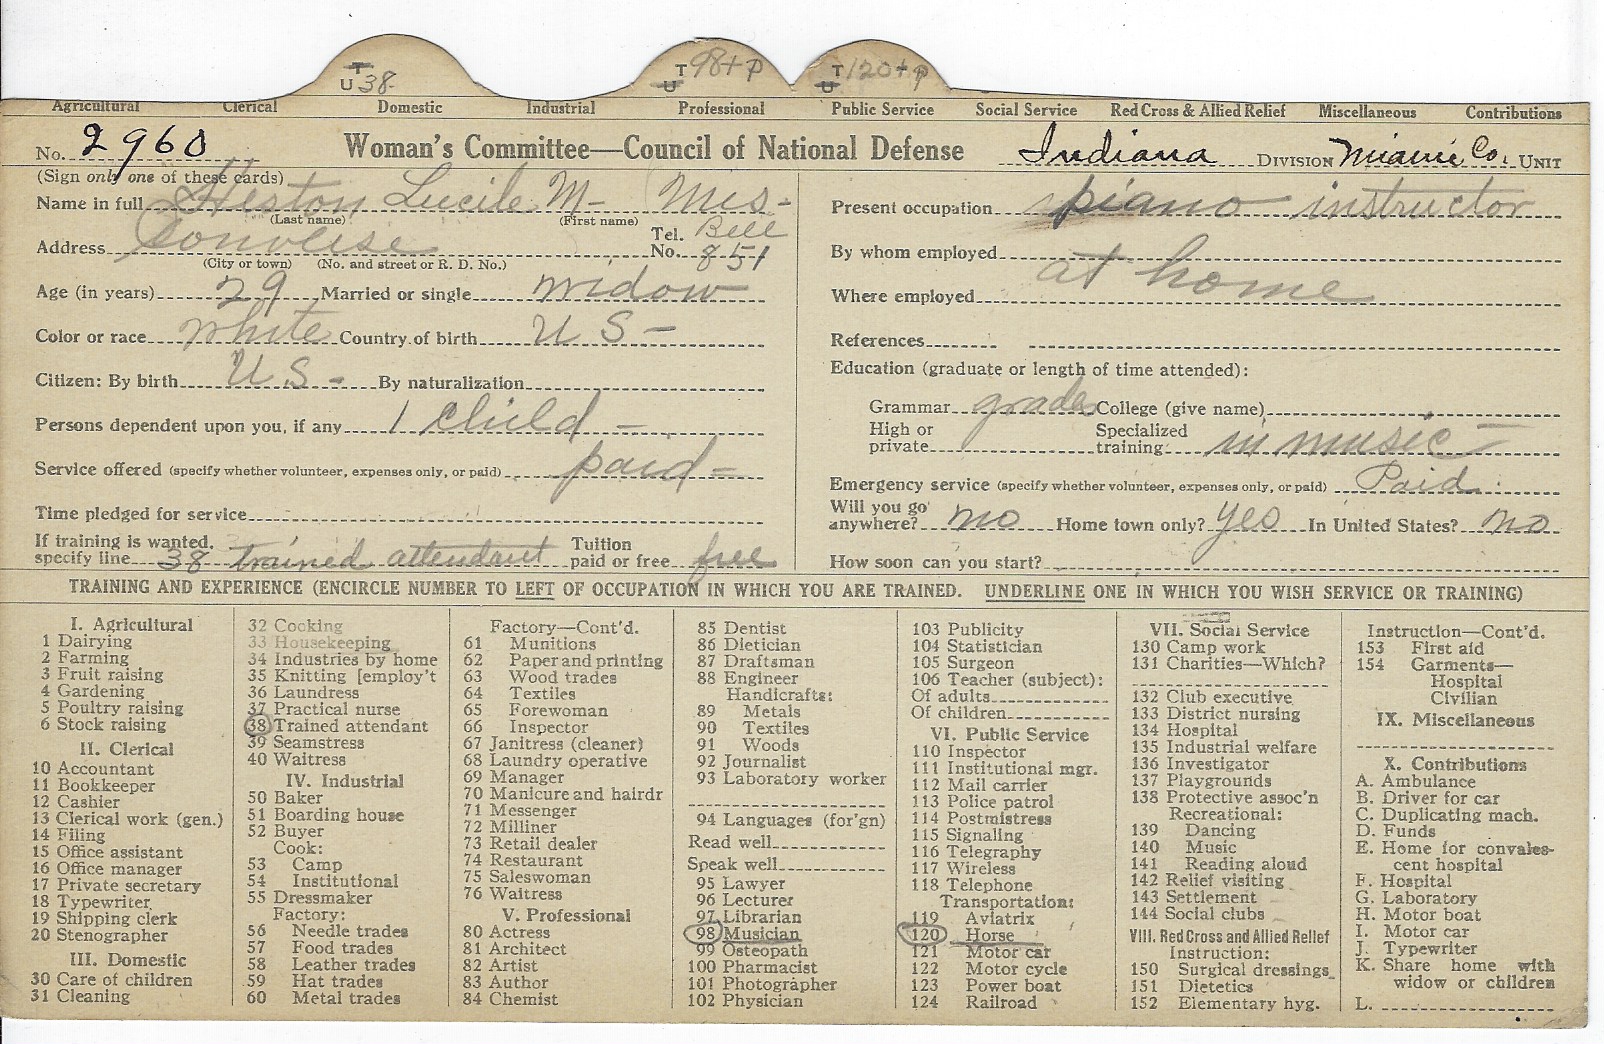 T U 38
T U 98 + P
T U 120 + P
Agricultural Clerical Domestic Industrial Professional Public Service Social Service Red Cross & Allied Relief Miscellaneous Contributions
No. 2960 Woman's Committee—Council of National Defense Indiana DIVISION Miami Co. UNIT
(Sign only one of these cards)
Name in full Heston Lucile M- Mrs-
(Last name) (First name)
Address Converse Tel. No. Bell 851
(City or town) (No. and street or R. D. No.)
Age (in years) 29 Married or single widow
Color or race white Country of birth U S -
Citizen: By birth U.S - By naturalization
Persons dependent upon you, if any 1 child -
Service offered (specify whether volunteer, expenses only, or paid) paid-
Time pledged for service
If training is wanted, specify line 38 trained attendant Tuition paid or free free
Present occupation piano instructor
By whom employed
at home
Where employed
References
Education (graduate or length of time attended):
Grammar grades College (give name)
High or private Specialized training: in music -
Emergency service (specify whether volunteer, expenses only, or paid) Paid
Will you go anywhere? no Home town only? yes In United States? no
How soon can you start?
TRAINING AND EXPERIENCE (ENCIRCLE NUMBER TO LEFT OF OCCUPATION IN WHICH YOU ARE TRAINED. UNDERLINE ONE IN WHICH YOU WISH SERVICE OR TRAINING)
I. Agricultural
1 Dairying
2 Farming
3 Fruit raising
4 Gardening
5 Poultry raising
6 Stock raising
II. Clerical
10 Accountant
11 Bookkeeper
12 Cashier
13 Clerical work (gen.)
14 Filing
15 Office assistant
16 Office manager
17 Private secretary
18 Typewriter
19 Shipping clerk
20 Stenographer
III. Domestic
30 Care of children
31 Cleaning
32 Cooking
33 Housekeeping
34 Industries by home
35 Knitting [employ't
36 Laundress
37 Practical nurse
38 Trained attendant
39 Seamstress
40 Waitress
IV. Industrial
50 Baker
51 Boarding house
52 Buyer
Cook:
53 Camp
54 Institutional
55 Dressmaker
Factory:
56 Needle trades
57 Food trades
58 Leather trades
59 Hat trades
60 Metal trades
Factory—Cont'd.
61 Munitions
62 Paper and printing
63 Wood trades
64 Textiles
65 Forewoman
66 Inspector
67 Janitress (cleaner)
68 Laundry operative
69 Manager
70 Manicure and hairdr
71 Messenger
72 Milliner
73 Retail dealer
74 Restaurant
75 Saleswoman
76 Waitress
V. Professional
80 Actress
81 Architect
82 Artist
83 Author
84 Chemist
85 Dentist
86 Dietician
87 Draftsman
88 Engineer
Handicrafts:
89 Metals
90 Textiles
91 Woods
92 Journalist
93 Laboratory worker
94 Languages (for'gn)
Read well
Speak well
95 Lawyer
96 Lecturer
97 Librarian
98 Musician
99 Osteopath
100 Pharmacist
101 Photographer
102 Physician
103 Publicity
104 Statistician
105 Surgeon
106 Teacher (subject):
Of adults
Of children
VI. Public Service
110 Inspector
111 Institutional mgr.
112 Mail carrier
113 Police patrol
114 Postmistress
115 Signaling
116 Telegraphy
117 Wireless
118 Telephone
Transportation:
119 Aviatrix
120 Horse
121 Motor car
122 Motor cycle
123 Power boat
124 Railroad
VII. Social Service
130 Camp work
131 Charities—Which?
132 Club executive
133 District nursing
134 Hospital
135 Industrial welfare
136 Investigator
137 Playgrounds
138 Protective assoc'n
Recreational:
139 Dancing
140 Music
141 Reading aloud
142 Relief visiting
143 Settlement
144 Social clubs
VIII. Red Cross and Allied Relief
Instruction:
150 Surgical dressings
151 Dietetics
152 Elementary hyg.
Instruction—Cont'd.
153 First aid
154 Garments—
Hospital
Civilian
IX. Miscellaneous
X. Contributions
A. Ambulance
B. Driver for car
C. Duplicating mach.
D. Funds
E. Home for convales-
cent hospital
F. Hospital
G. Laboratory
H. Motor boat
I. Motor car
J. Typewriter
K. Share home with
widow or children
L.